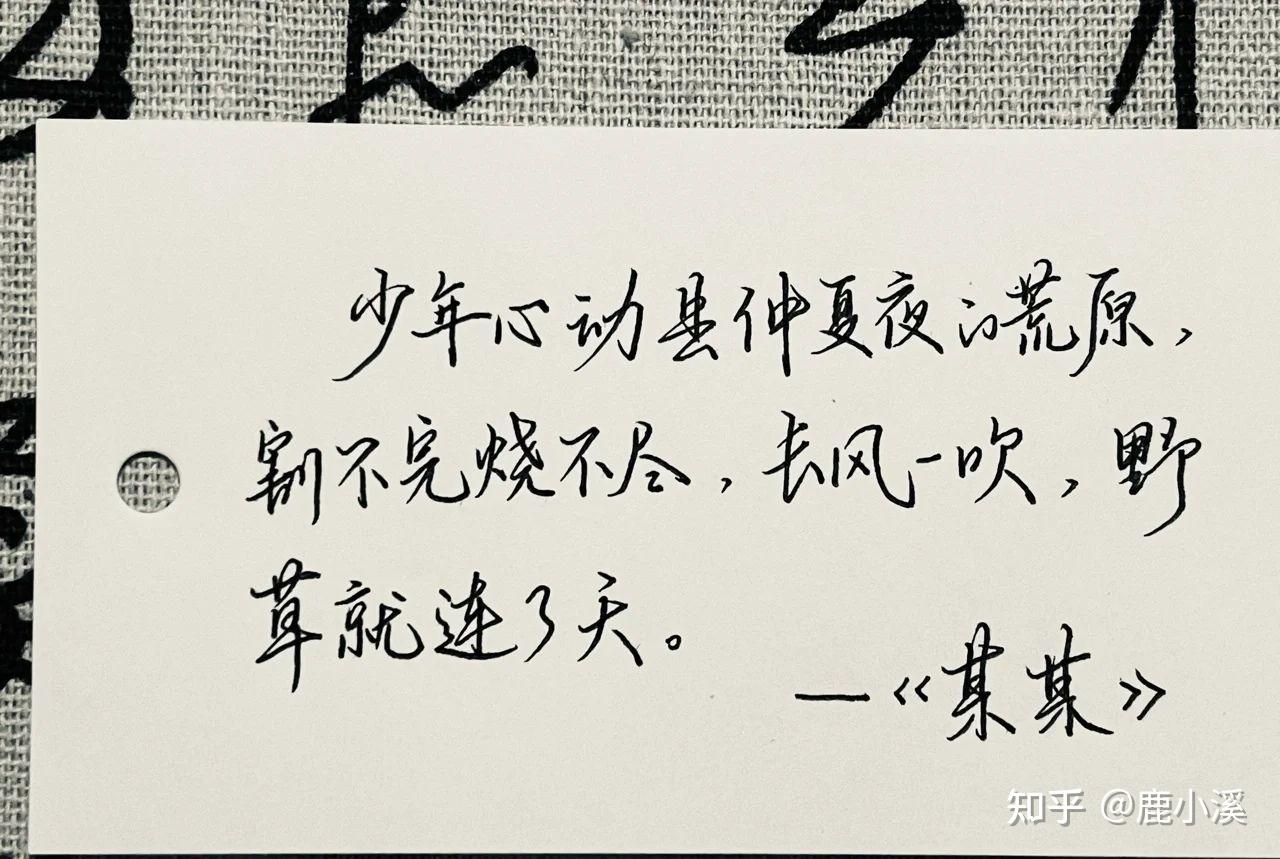 少年心动是仲夏夜的荒原，
割不完烧不尽，长风一吹，野
草就连了天。
—《某某》
知乎 @鹿小溪